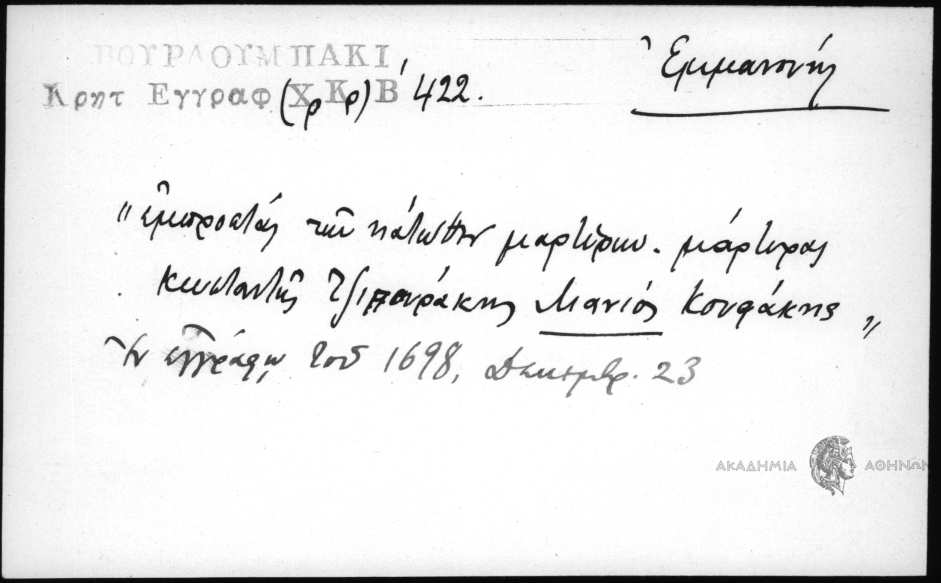 ΒΟΥΡΔΟΥΜΠΑΚΙ
Κρητ Εγγραφ (Χρ Κρ) Β' 422.
Ἐμμανουήλ
"ἐμπροστάς τῶν κάτωθεν μαρτύρων. μάρτυρας
Κωσταντῆς Τζιπουράκης Μανιός Κουφάκης"
Ἐν ἐγγράφῳ τοῦ 1698, Δεκεμβρ. 23
ΑΚΑΔΗΜΙΑ ΑΘΗΝΩΝ